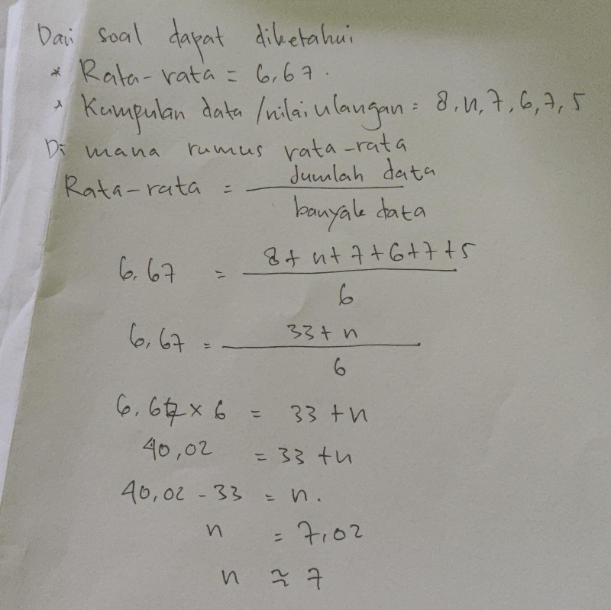 Dari soal dapat diketahui
* Rata-rata = 6,67.
* Kumpulan data /nilai ulangan = 8, n, 7, 6, 7, 5
Di mana rumus rata-rata
Rata-rata = Jumlah data / banyak data
6,67 = 8+n+7+6+7+5 / 6
6,67 = 33+n / 6
6,67 x 6 = 33+n
40,02 = 33+n
40,02 - 33 = n.
n = 7,02
n ≈ 7